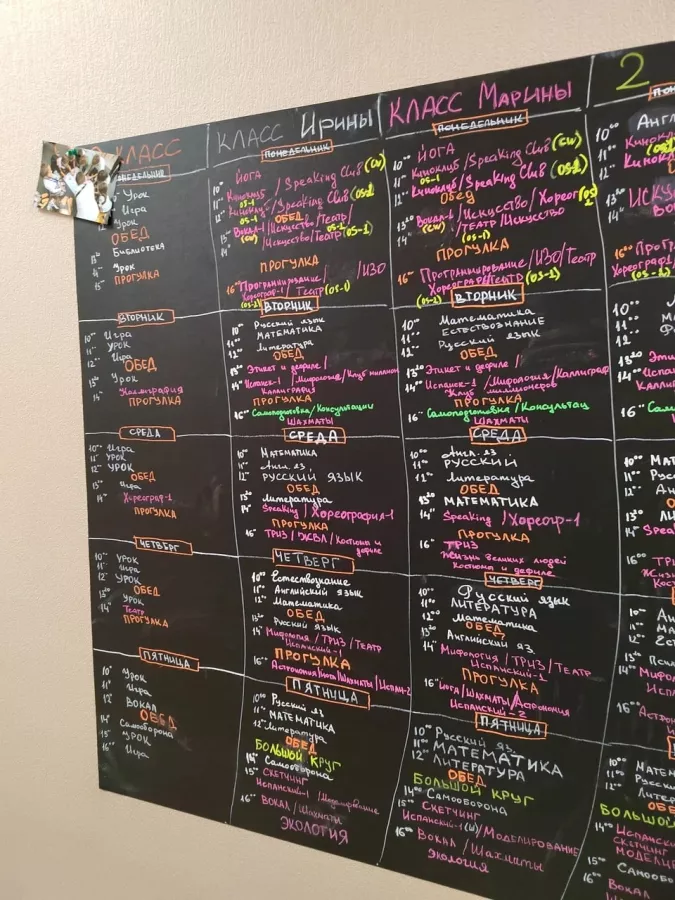 КЛАСС
ПОНЕДЕЛЬНИК
Урок
Игра
Урок
ОБЕД
Библиотека
Урок
ПРОГУЛКА
ВТОРНИК
10⁰⁰ Игра
11⁰⁰ УРОК
12⁰⁰ Игра
ОБЕД
Урок
Каллиграфия
ПРОГУЛКА
СРЕДА
10⁰⁰ Игра
11⁰⁰ УРОК
12⁰⁰ УРОК
ОБЕД
Игра
Хореограф-1
ПРОГУЛКА
ЧЕТВЕРГ
10⁰⁰ УРОК
11⁰⁰ Игра
12⁰⁰ УРОК
ОБЕД
13²⁰ Урок
14⁰⁰ Театр
ПРОГУЛКА
ПЯТНИЦА
10⁰⁰ Урок
11⁰⁰ Игра
12⁰⁰ ВОКАЛ
ОБЕД
14⁰⁰ Самооборона
15⁰⁰ УРОК
16⁰⁰ Игра
КЛАСС Ирины
ПОНЕДЕЛЬНИК
10⁰⁰ ЙОГА
11⁰⁰ Киноклуб/Speaking Club (CW)
OS-1
12⁰⁰ Киноклуб/Speaking Club (OS-1)
OS-1 ОБЕД
Вокал-1/Искусство/Театр/
(CW) (OS-1)
/Искусство/Театр (OS-1)
ПРОГУЛКА
16⁰⁰ Программирование/ /ИЗО
Хореограф-1/Театр (OS-1)
(OS-2)
ВТОРНИК
10⁰⁰ Русский язык
11⁰⁰ МАТЕМАТИКА
12⁰⁰ Литература
ОБЕД
13²⁰ Этикет и дефиле/
14⁰⁰ Испанск-1/Мифология/Клуб
Каллиграфия
ПРОГУЛКА
16⁰⁰ Самоподготовка/Консультации
ШАХМАТЫ
СРЕДА
10⁰⁰ МАТЕМАТИКА
11⁰⁰ Англ. яз.
12⁰⁰ РУССКИЙ ЯЗЫК
ОБЕД
13²⁰ Литература
14⁰⁰ Speaking/Хореография-1
ПРОГУЛКА
16⁰⁰ ТРИЗ/ЖЗЛ/Костюм и
дефиле
ЧЕТВЕРГ
10⁰⁰ Естествознание
11⁰⁰ Английский язык
12⁰⁰ Математика
ОБЕД
13²⁰ Русский язык
14⁰⁰ Мифология/ТРИЗ/ТЕАТР
Испанский-1
ПРОГУЛКА
16⁰⁰ Астрономия/Йога/Шахматы/Испан-2
ПЯТНИЦА
10⁰⁰ Русский яз
11⁰⁰ МАТЕМАТИКА
12⁰⁰ Литература
ОБЕД
БОЛЬШОЙ КРУГ
14⁰⁰ Самооборона
15⁰⁰ СКЕТЧИНГ
Испанский-1/Моделирование
16⁰⁰ ВОКАЛ/Шахматы
ЭКОЛОГИЯ
КЛАСС МАРИНЫ
ПОНЕДЕЛЬНИК
10⁰⁰ ЙОГА
11⁰⁰ Киноклуб/Speaking Club (CW)
OS-1
12⁰⁰ Киноклуб/Speaking Club (OS-1)
Обед
13²⁰ Вокал-1/Искусство/Хореог
14⁰⁰ (CW) /ТЕАТР/Искусство
(OS-1)
ПРОГУЛКА
16⁰⁰ Программирование/ИЗО/
Хореограф/Театр (OS-1)
(OS-2)
ВТОРНИК
10⁰⁰ Математика
11⁰⁰ ЕСТЕСТВОЗНАНИЕ
12⁰⁰ Русский язык
ОБЕД
13²⁰ Этикет и дефиле/
14⁰⁰ Испанск-1/Мифология/Каллиграф
Клуб миллионеров
ПРОГУЛКА
16⁰⁰ Самоподготовка/Консультац
ШАХМАТЫ
СРЕДА
10⁰⁰ Англ. яз.
11⁰⁰ РУССКИЙ
12⁰⁰ Литература
ОБЕД
13²⁰ МАТЕМАТИКА
14⁰⁰ Speaking/Хореогр-1
ПРОГУЛКА
16⁰⁰ ТРИЗ
Жизнь великих людей
Костюм и дефиле
ЧЕТВЕРГ
10⁰⁰ Русский язык
11⁰⁰ ЛИТЕРАТУРА
12⁰⁰ Математика
ОБЕД
13²⁰ Английский яз.
14⁰⁰ Мифология/ТРИЗ/ТЕАТР
Испанский-1
ПРОГУЛКА
16⁰⁰ Йога/ШАХМАТЫ/Астрономия
Испанский-2
ПЯТНИЦА
10⁰⁰ Русский яз.
11⁰⁰ МАТЕМАТИКА
12⁰⁰ ЛИТЕРАТУРА
ОБЕД
БОЛЬШОЙ КРУГ
14⁰⁰ Самооборона
15⁰⁰ СКЕТЧИНГ
Испанский-1(Ш)/Моделирование
16⁰⁰ Вокал/Шахматы
Экология
2
10⁰⁰ Англ
11⁰⁰ Кинокл
12⁰⁰ Кинокл
13²⁰ ИСКУ
14⁰⁰ ВОК
16⁰⁰ Прогр
Хореограф
(OS-1)
10⁰⁰
11⁰⁰ Мате
12⁰⁰
13²⁰ Этик
14⁰⁰ Испанск
Каллиг
16⁰⁰ Самоп
10⁰⁰ Мат
11⁰⁰ Русск
12⁰⁰ Анг
13²⁰ ЛИ
14⁰⁰ Speak
16⁰⁰ ТРИЗ
Жизнь
Кост
10⁰⁰ Ан
11⁰⁰ МАТ
12⁰⁰ Ест
13²⁰
14⁰⁰ Мифол
Испан
16⁰⁰ Астрон
10⁰⁰ МАТЕМ
11⁰⁰ Русски
12⁰⁰ Литер
ОБЕ
БОЛЬШО
14⁰⁰ Испански
СКЕТЧИНГ
МОДЕЛИР
15⁰⁰ Самообо
16⁰⁰ ВОКАЛ